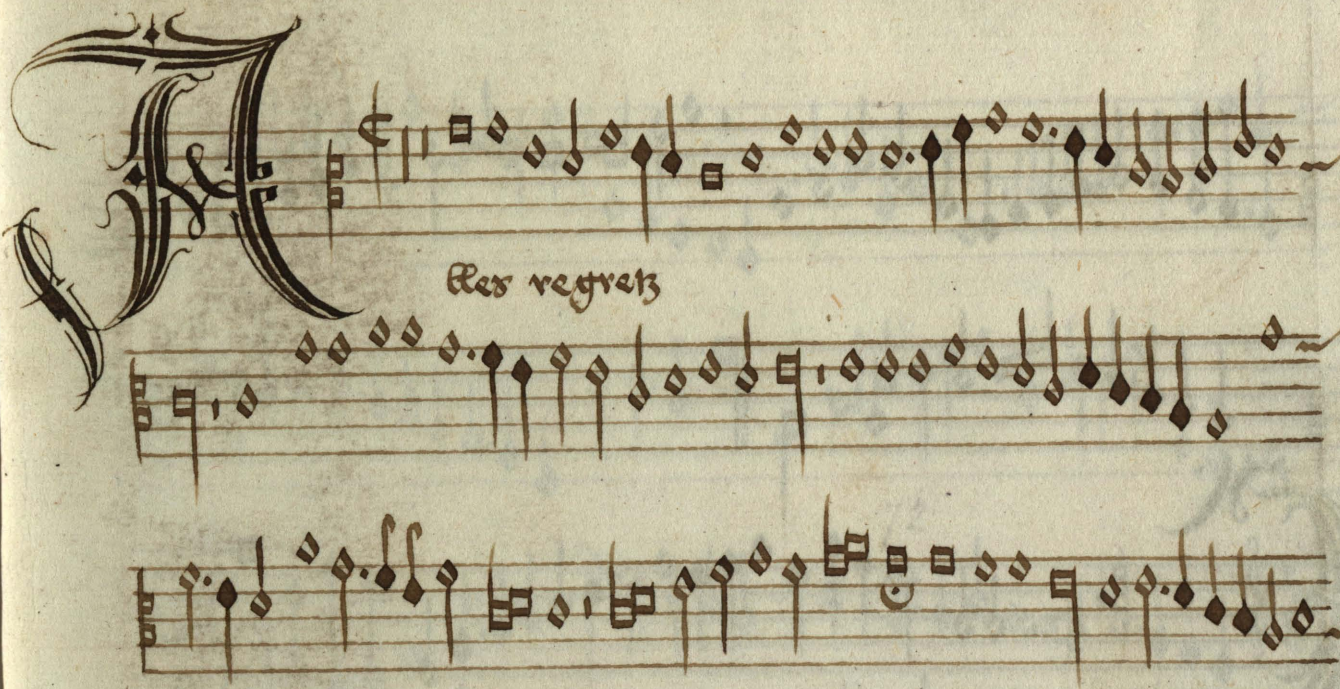 Alles regretz